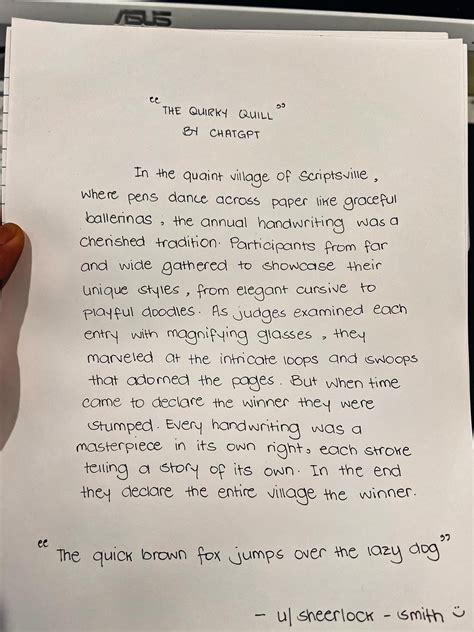 ASUS
“THE QUIRKY QUILL”
BY CHATGPT
In the quaint village of Scriptsville,
where pens dance across paper like graceful
ballerinas, the annual handwriting was a
cherished tradition. Participants from far
and wide gathered to showcase their
unique styles, from elegant cursive to
playful doodles. As judges examined each
entry with magnifying glasses, they
marveled at the intricate loops and swoops
that adorned the pages. But when time
came to declare the winner they were
stumped. Every handwriting was a
masterpiece in its own right, each stroke
telling a story of its own. In the end
they declare the entire village the winner.
“The quick brown fox jumps over the lazy dog”
- u/sheerlock-smith